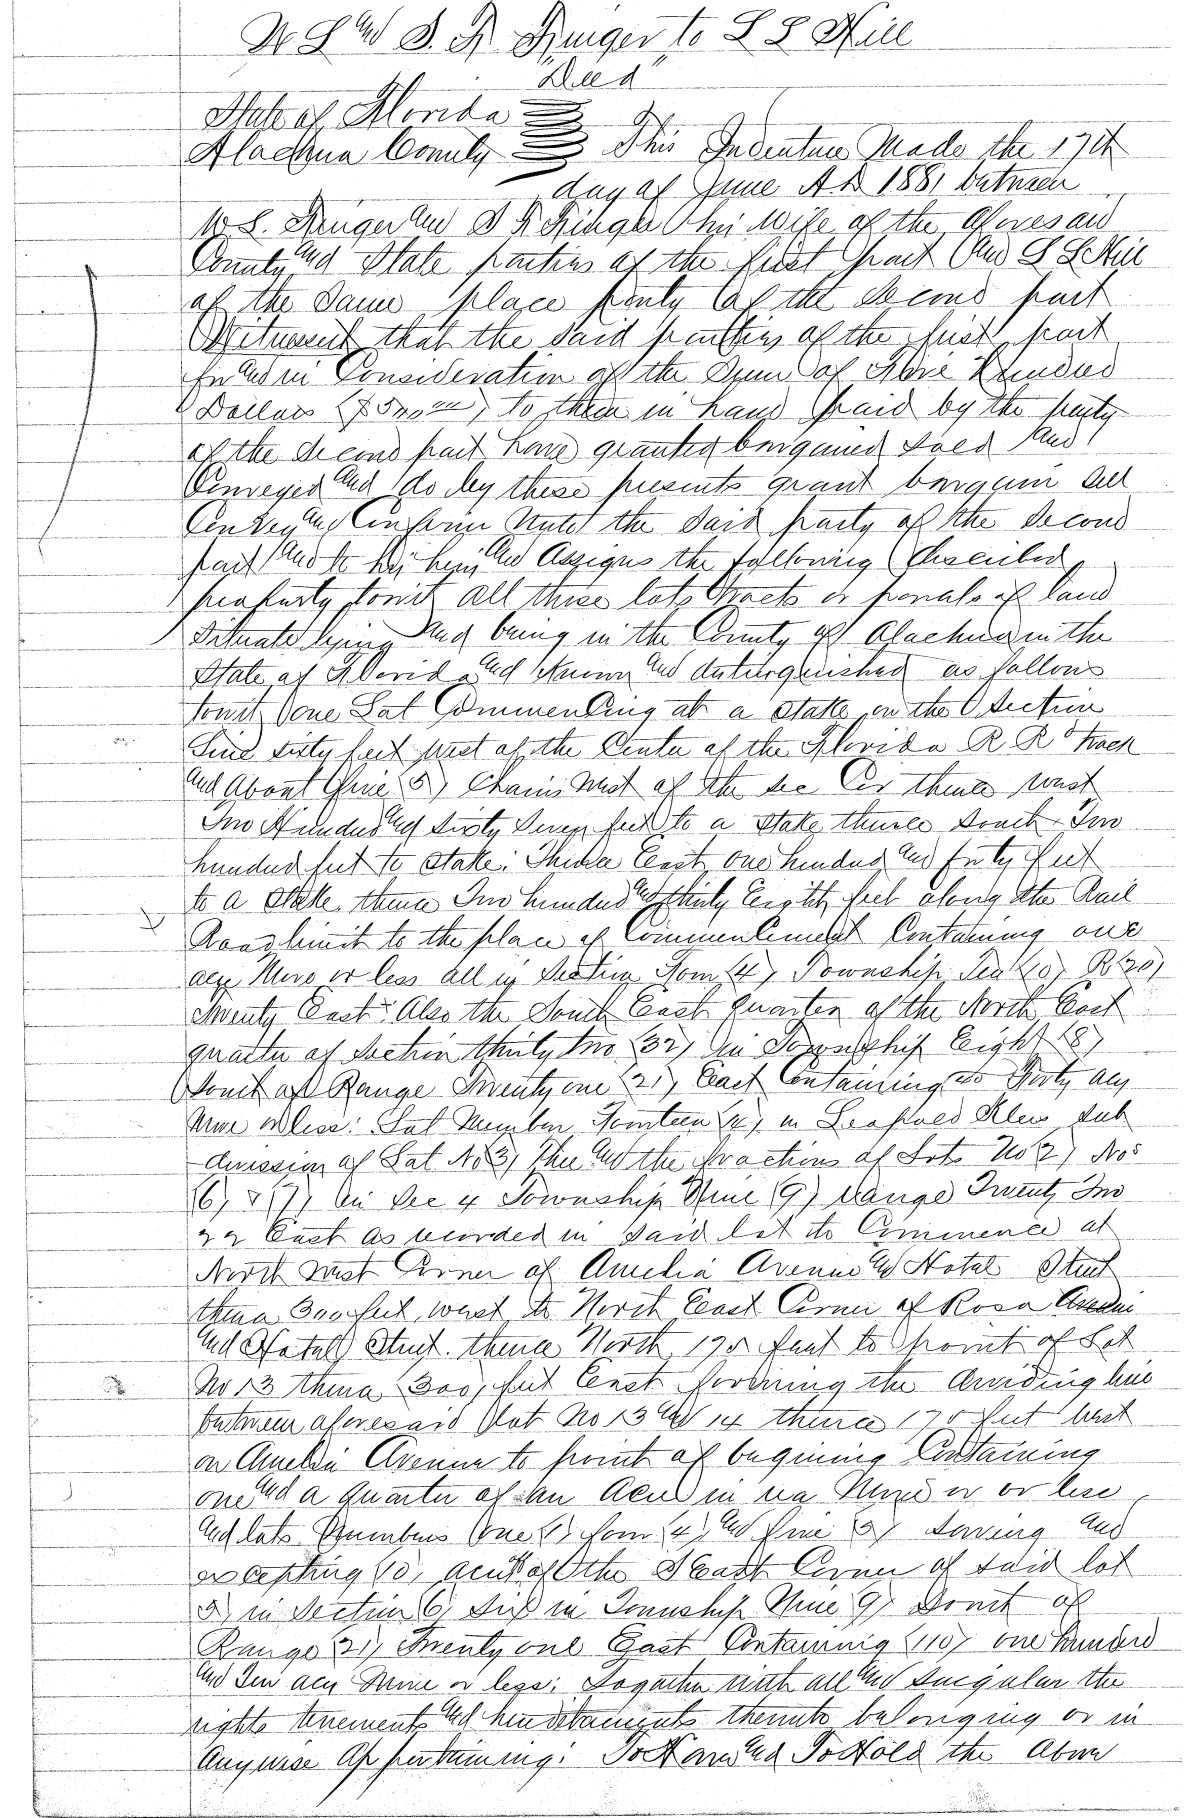 W S and S. R. Kinger to L L Hill
Deed
State of Florida
Alachua County This Indenture Made the 17th
day of June A D 1881 between
W S. Kinger and S R his Wife of the Aforesaid
County and State parties of the first part And L L Hill
of the Same place party of the Second part
Witnesseth that the Said parties of the first part
for and in Consideration of the Sum of Five Hundred
Dollars ($500.00) to them in hand paid by the party
of the Second part have granted bargained Sold And
Conveyed and do by these presents grant bargain Sell
Convey and Confirm Unto the Said party of the Second
part And to his heirs and Assigns the following Described
property towit all those lots tracts or parcels of land
Situate lying And being in the County of Alachua in the
State of Florida and Known and distinguished as follows
towit One Lot Commencing at a Stake on the Section
Line Sixty feet west of the Center of the Florida R R track
and About Five (5) Chains West of the Sec Cor thence West
Two Hundred and Sixty Seven feet to a Stake thence South Two
hundred feet to Stake: Thence East one hundred and forty feet
to a Stake thence Two hundred and thirty Eight feet along the Rail
Road limit to the place of Commencement Containing one
acre More or less all in Section Four (4) Township Ten (10) R (20)
Twenty East: Also the South East quarter of the North East
quarter of Section thirty two (32) in Township Eight (8)
South of Range Twenty one (21) East Containing Forty acres
More or less: Lot Number Fourteen (14) in Sub
division of Lot No 3) Three and the fractions of Lots No 2) Nos
(6) & (7) in Sec 4 Township Nine (9) Range Twenty Two
22 East as recorded in Said lot to Commence at
North West Corner of Amelia Avenue and Hotel Street
thence 300 feet west to North East Corner of Rosa Avenue
and Hotel Street. thence North 175 feet to point of Lot
No 13 thence (300) feet East forming the dividing line
between aforesaid Lot No 13 and 14 thence 175 feet West
on Amelia Avenue to point of begining Containing
one and a Quarter of an Acre in More or or less
And lots Numbers One (1) four (4) and five (5) Saving and
excepting 10) acres of the S East Corner of Said lot
5) in Section 6) Six in Township Nine 9) South of
Range (21) Twenty one East Containing (110) one hundred
and Ten acres More or less; Together with all and Singular the
rights tenements and hereditaments thereunto belonging or in
Anywise Appertaining: To Have and To Hold the Above